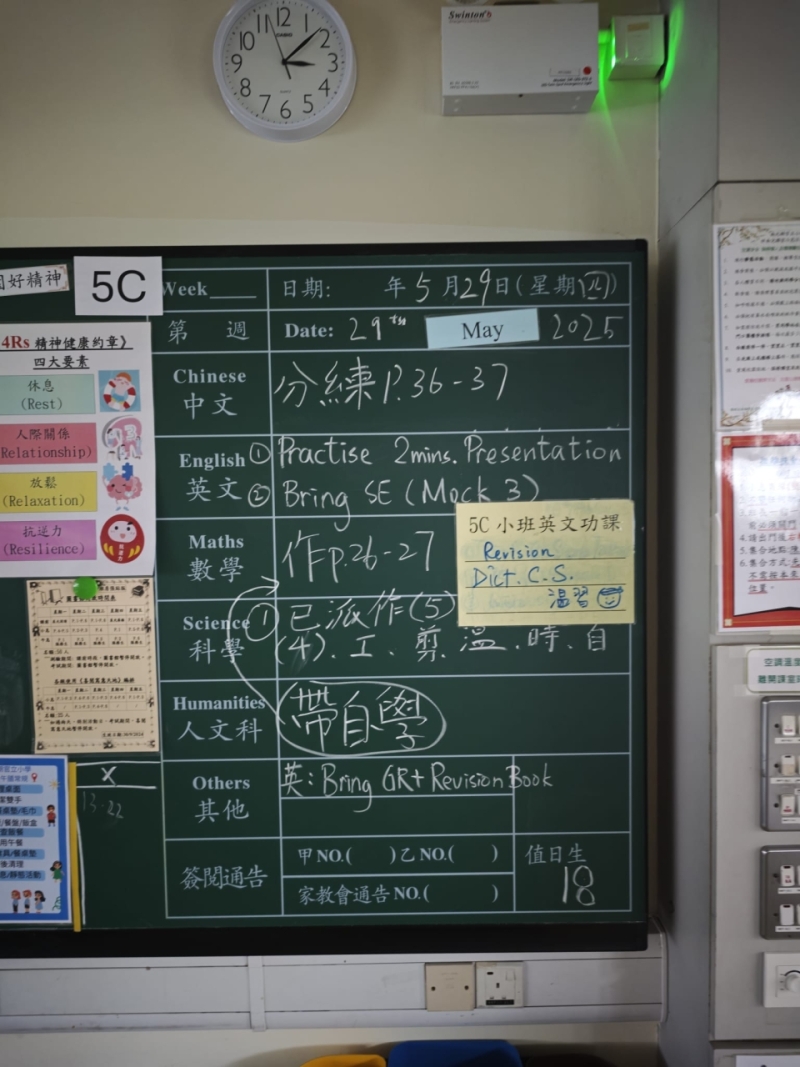 12
11
1
10
2
9
3
8
4
7
6
5
CASIO
Swinton's
5C
Week____ 日期: 年5月29日(星期四)
第 週 Date: 29th May 2025
Chinese
中文
分練P.36-37
English
英文
① Practise 2mins. Presentation
② Bring SE (Mock 3)
Maths
數學
作p.26-27
5C 小班英文功課
Revision
Dict. C.S.
溫習
Science
科學
① 已派作(5)
(4)、工、剪、溫、時、自
Humanities
人文科
帶自學
Others
其他
英: Bring GR + Revision Book
簽閱通告
甲NO.( )乙NO.( )
家教會通告NO.( )
值日生
18
好精神
4Rs 精神健康約章》
四大要素
休息
(Rest)
人際關係
(Relationship)
放鬆
(Relaxation)
抗逆力
(Resilience)
X
13-22
空調溫
離開課室